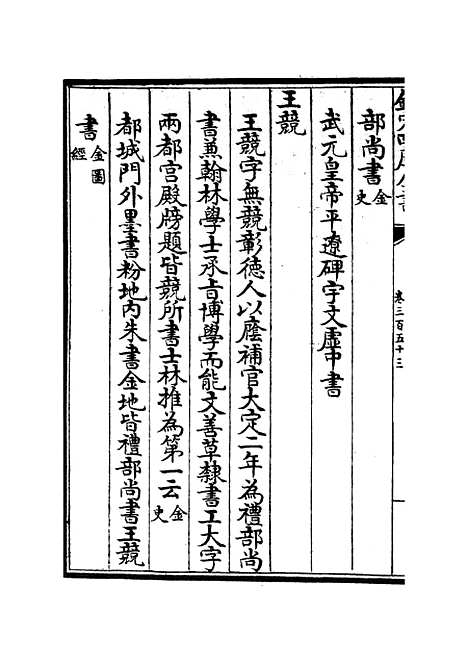 欽定四庫全書
卷三百五十三
部尚書金史
武元皇帝平遼碑宇文虛中書
王競
王競字無競彰德人以廕補官大定二年為禮部尚
書兼翰林學士承旨博學而能文善草隸書工大字
兩都宮殿牓題皆競所書士林推為第一云金史
都城門外墨書粉地內朱書金地皆禮部尚書王競
書金圖經